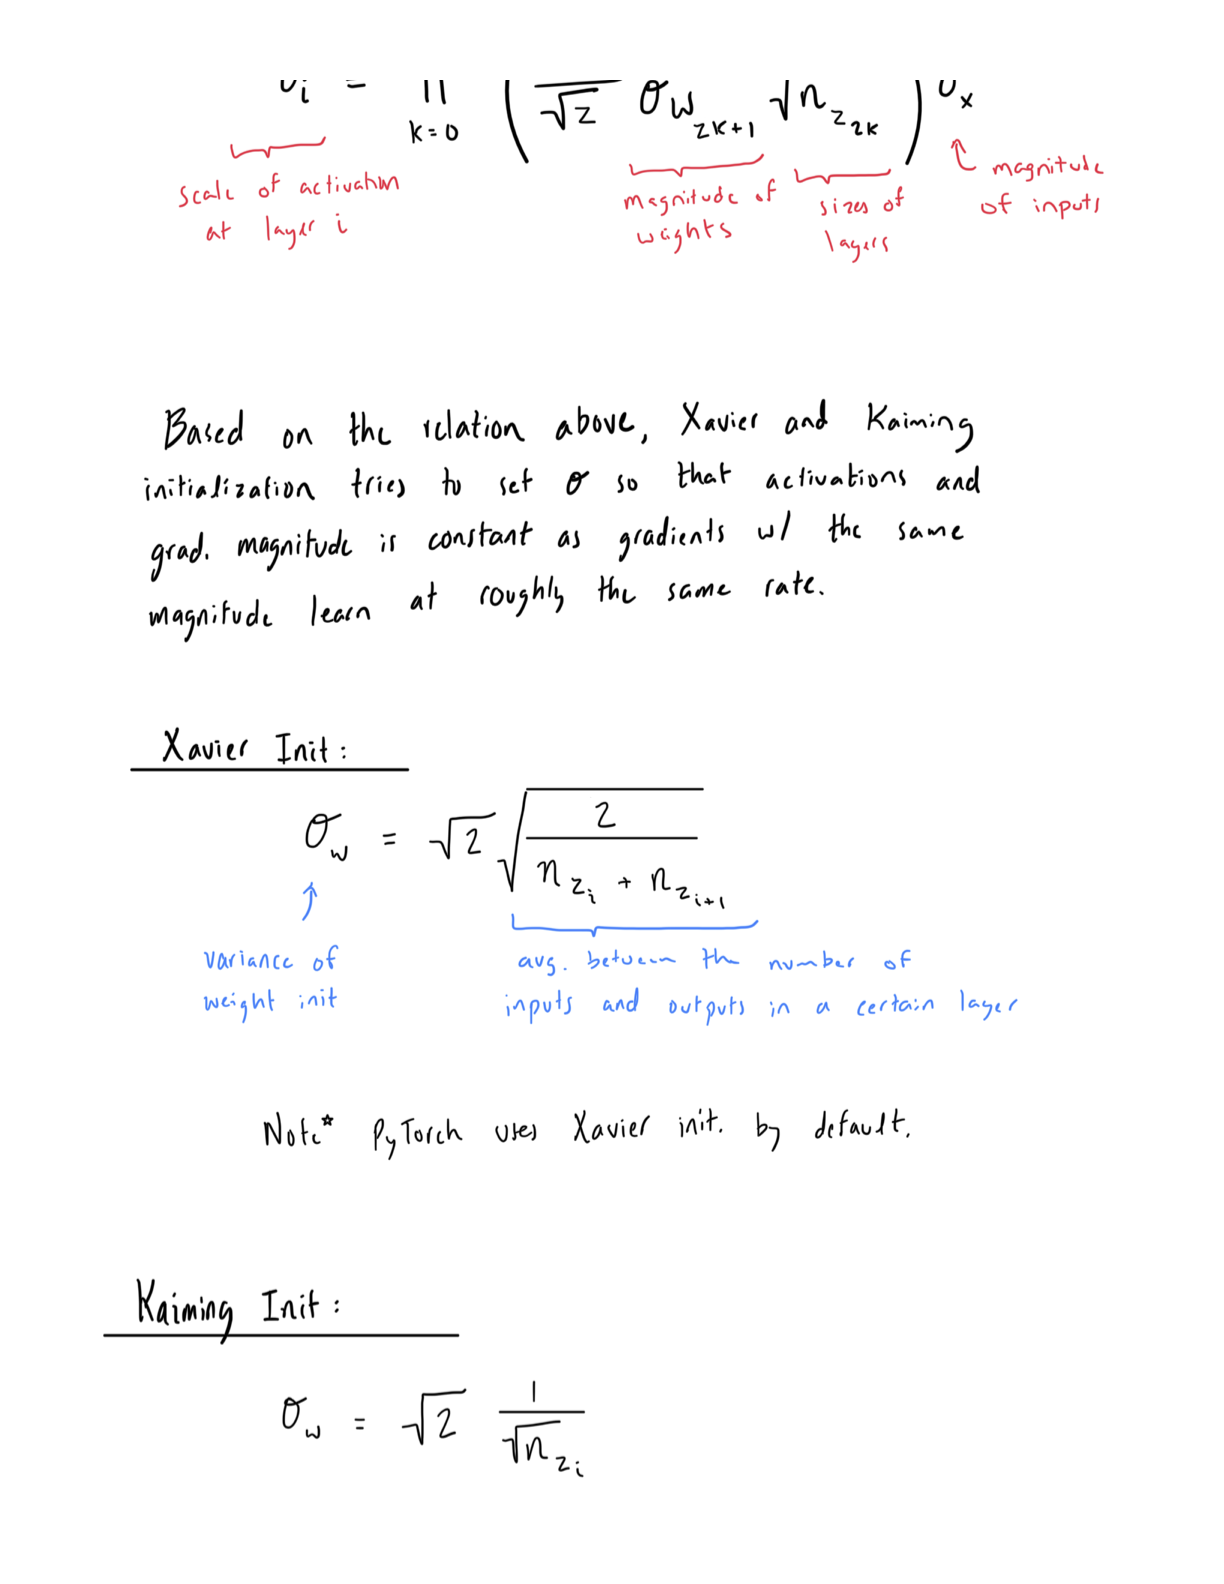 σ_i = Π_{k=0} ( 1/√2 σ_{w_{2k+1}} √n_{z_{2k}} ) σ_x
scale of activation
at layer i
magnitude of
weights
sizes of
layers
magnitude
of inputs
Based on the relation above, Xavier and Kaiming
initialization tries to set σ so that activations and
grad. magnitude is constant as gradients w/ the same
magnitude learn at roughly the same rate.
Xavier Init:
σ_w = √2 √(2 / (n_{z_i} + n_{z_{i+1}}))
variance of
weight init
avg. between the number of
inputs and outputs in a certain layer
Note* PyTorch uses Xavier init. by default.
Kaiming Init:
σ_w = √2 1/√n_{z_i}